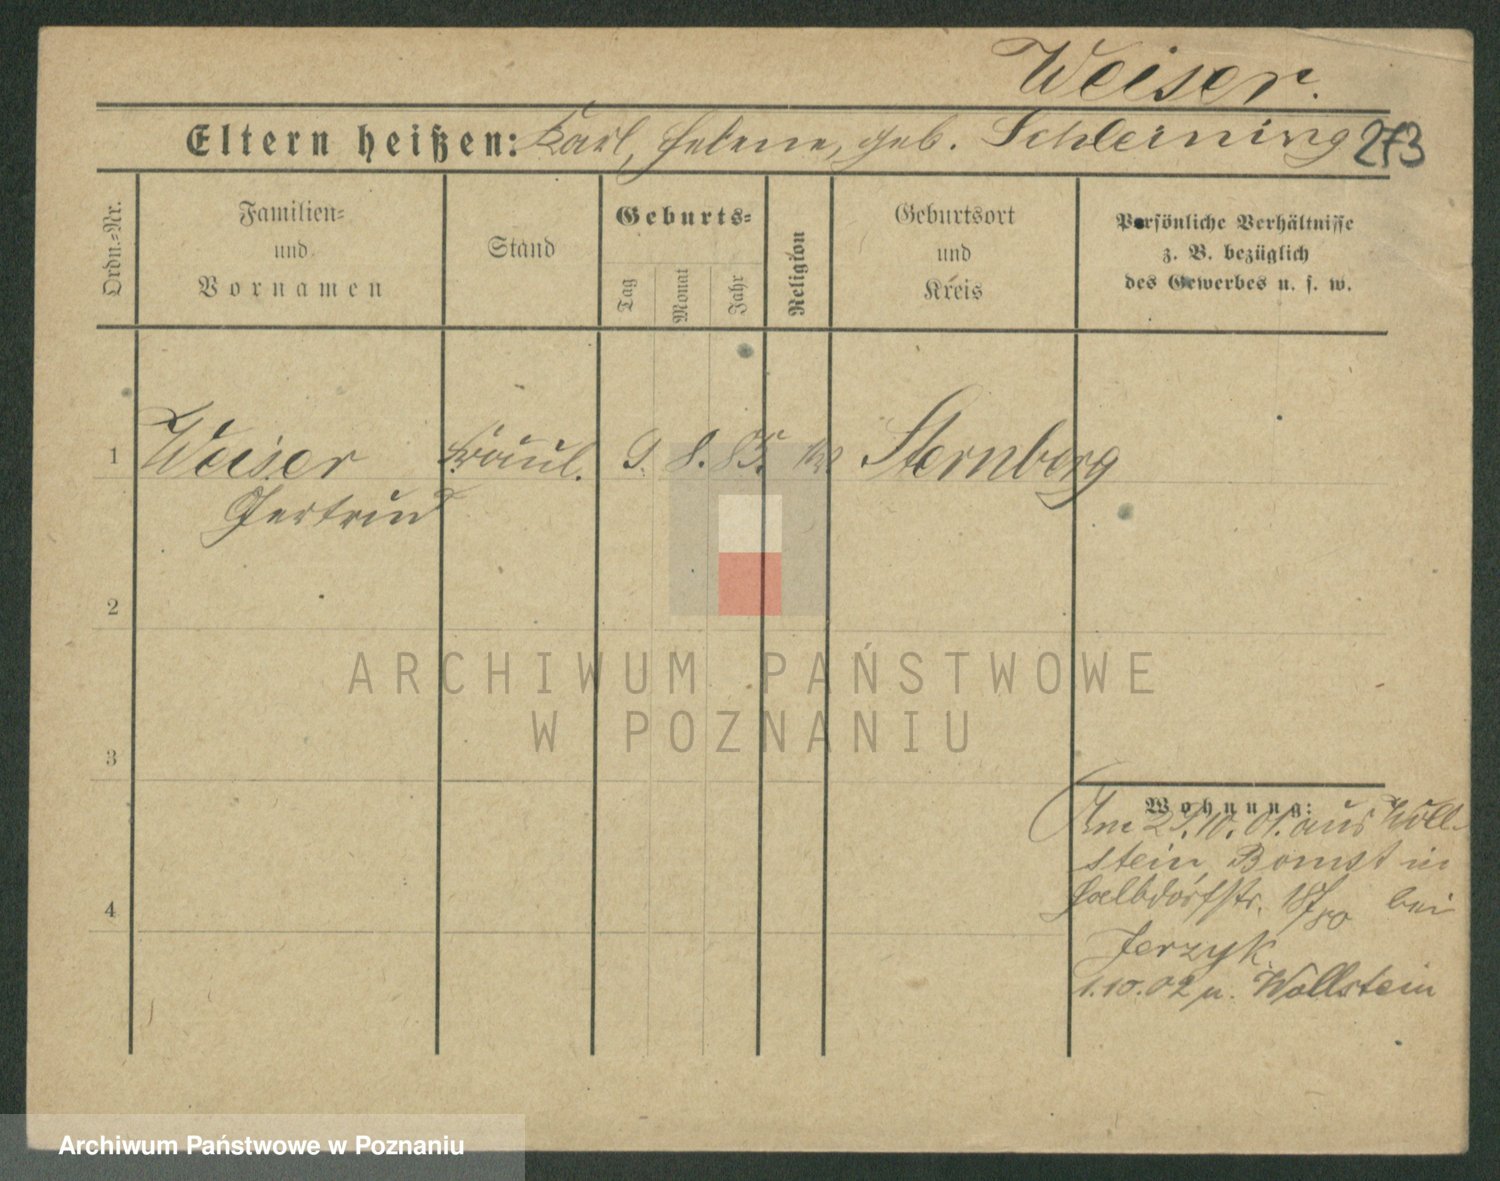 Weiser.
Eltern heißen: Karl, Helene, geb. Schlerning 273
Ordn.=Nr.
Familien=
und
Vornamen
Stand
Geburts=
Tag
Monat
Jahr
Religion
Geburtsort
und
Kreis
Persönliche Verhältnisse
z. B. bezüglich
des Gewerbes u. s. w.
1 Weiser Fräul. 9. 8. 85. Sternberg
Gertrud
2
3
4
ARCHIWUM PAŃSTWOWE
W POZNANIU
Wohnung:
Am 29.10.01. aus Woll-
stein, Bomst in
Halbdorfstr. bei
Jerzyk.
1.10.02 n. Wollstein
Archiwum Państwowe w Poznaniu